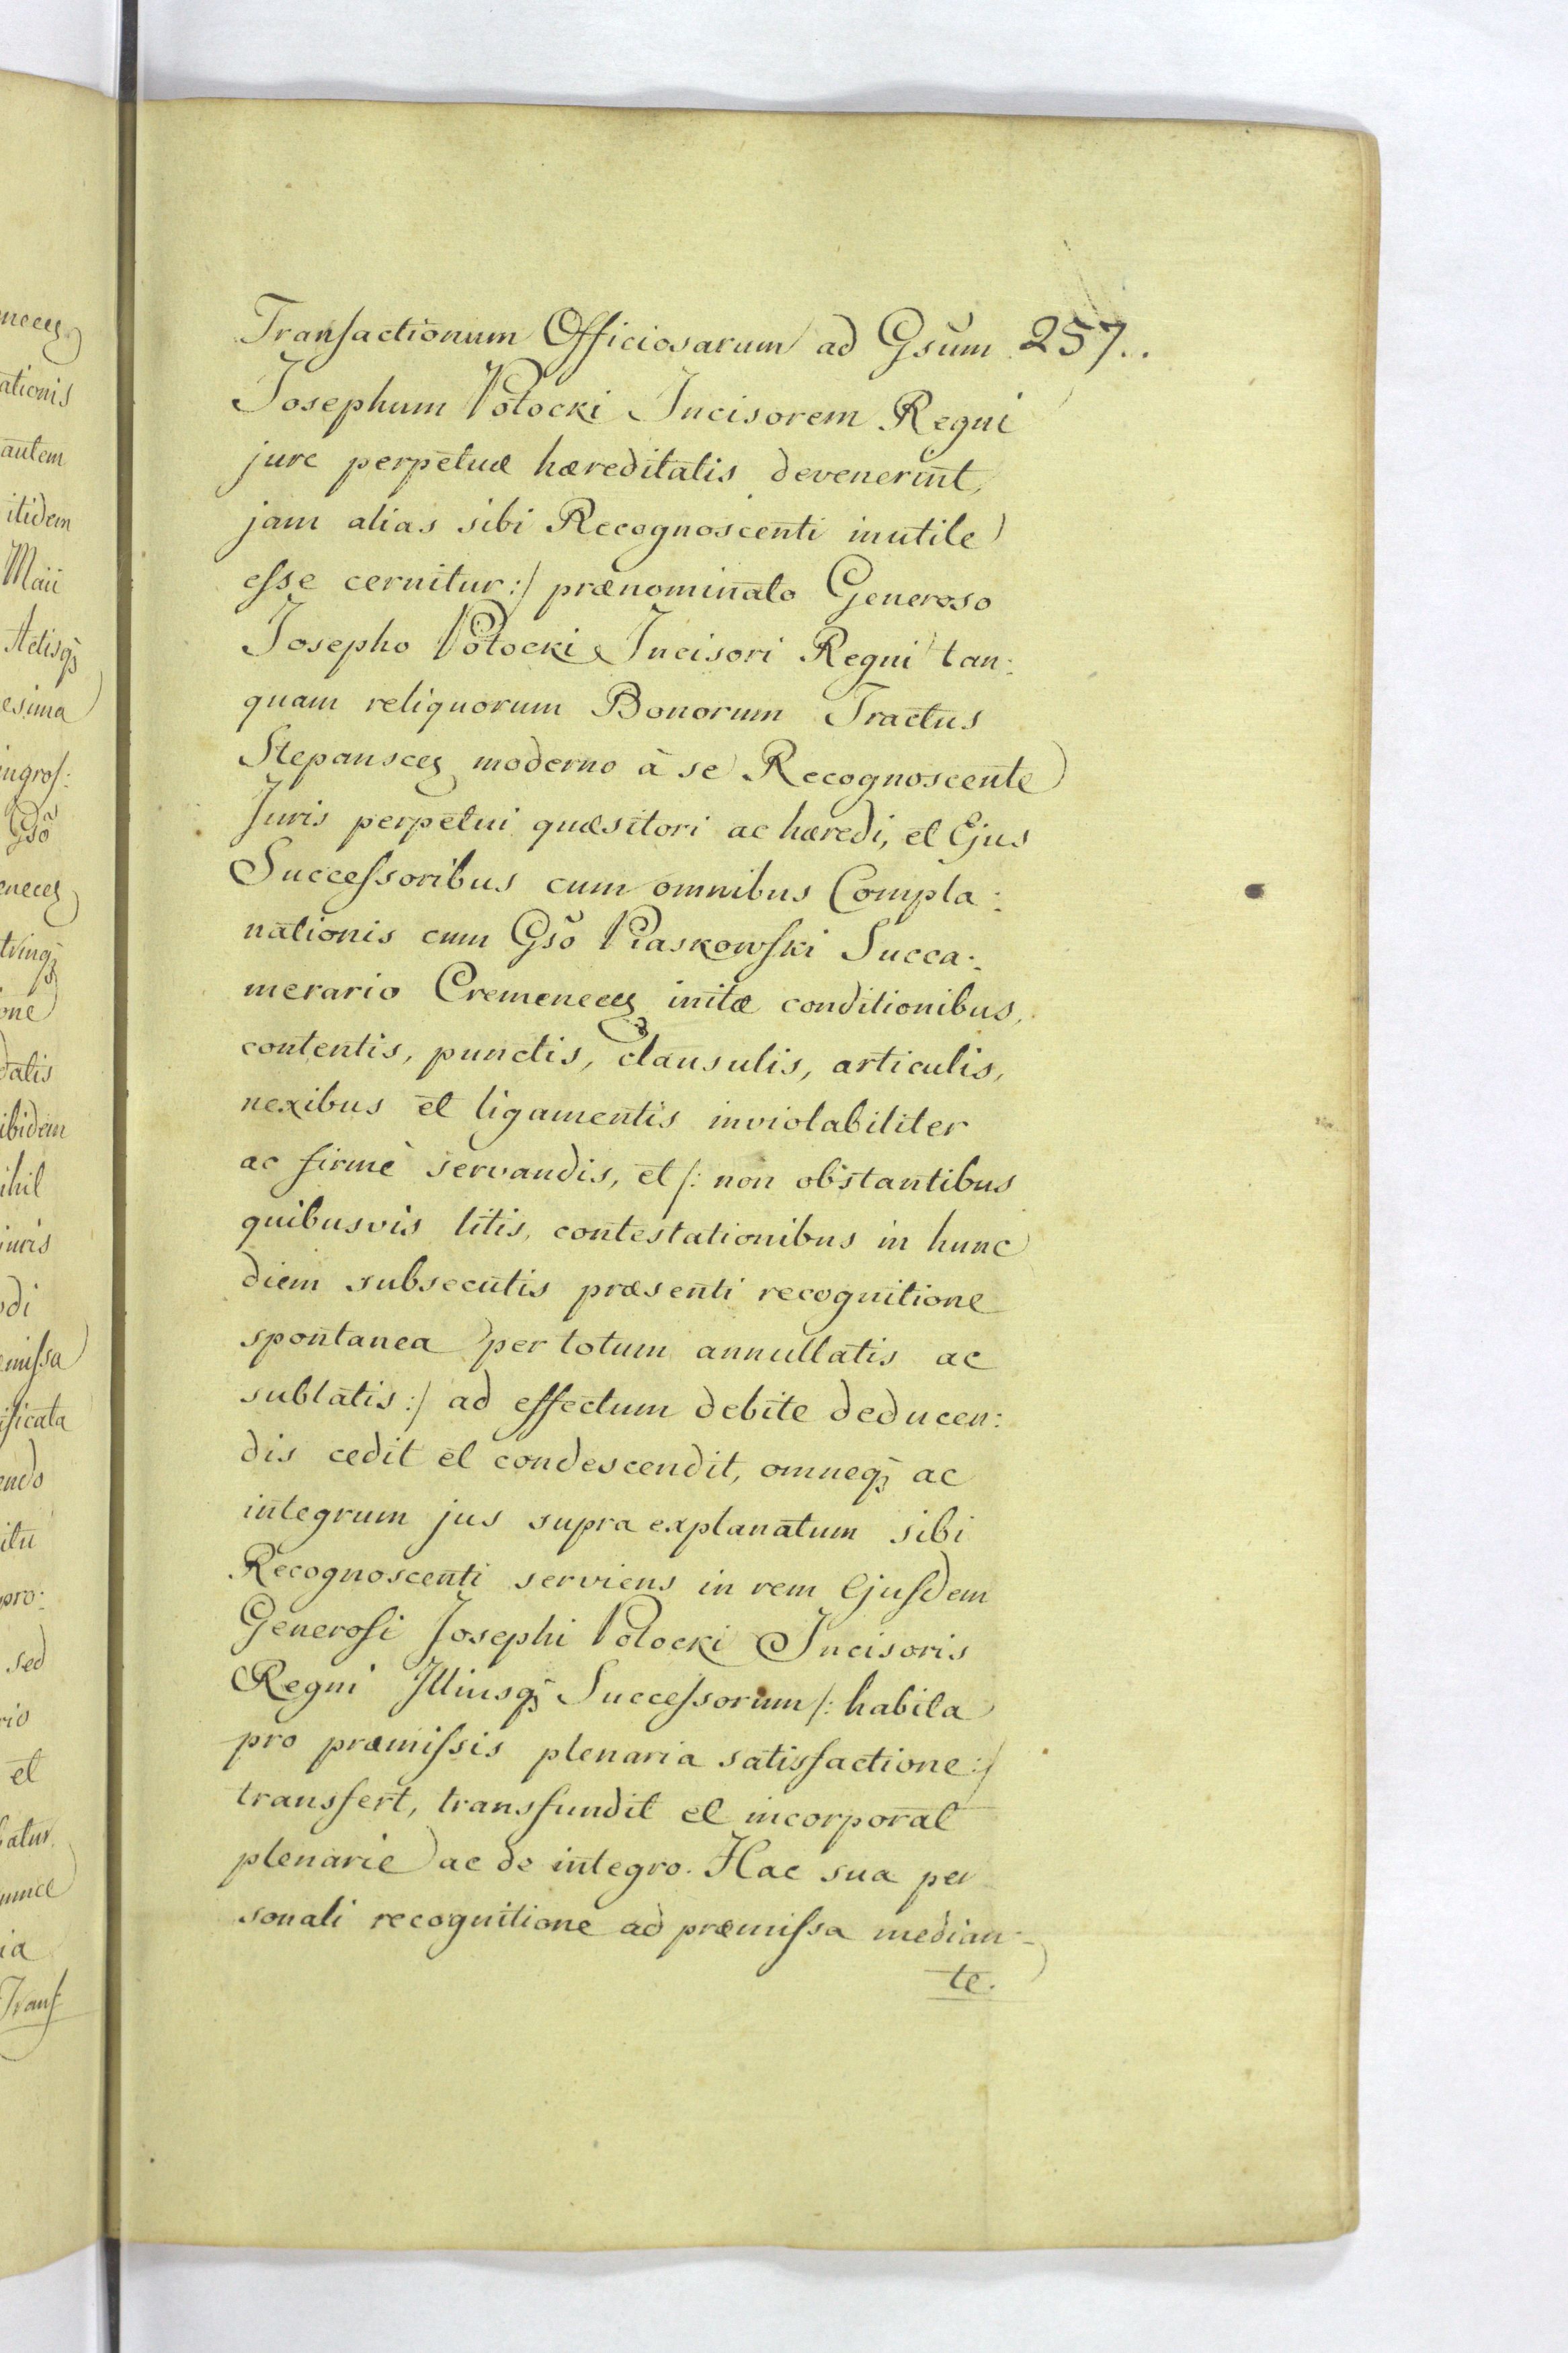 Transactionum Officiosarum ad Gsum 257..
Josephum Potocki Incisorem Regni
jure perpetuæ hæreditatis devenerint,
jam alias sibi Recognoscenti inutile
esse cernitur:/ prænominato Generoso
Josepho Potocki Incisori Regni tan:
quam reliquorum Bonorum Tractus
Stepanscen moderno à se Recognoscente
Juris perpetui quæsitori ac hæredi, et Ejus
Successoribus cum omnibus Compla:
nationis cum Gso Piaskowski Succa:
merario Cremenecen initæ conditionibus,
contentis, punctis, clausulis, articulis,
nexibus et ligamentis inviolabiliter
ac firmè servandis, et /: non obstantibus
quibusvis litis, contestationibus in hunc
diem subsecutis præsenti recognitione
spontanea per totum annullatis ac
sublatis:/ ad effectum debite deducen:
dis cedit et condescendit, omneqꝫ ac
integrum jus supra explanatum sibi
Recognoscenti serviens in rem Ejusdem
Generosi Josephi Potocki Incisoris
Regni Illiusqꝫ Successorum /: habita
pro præmissis plenaria satisfactione:/
transfert, transfundit et incorporat
plenarie ac de integro. Hac sua per
sonali recognitione ad præmissa median-
te.